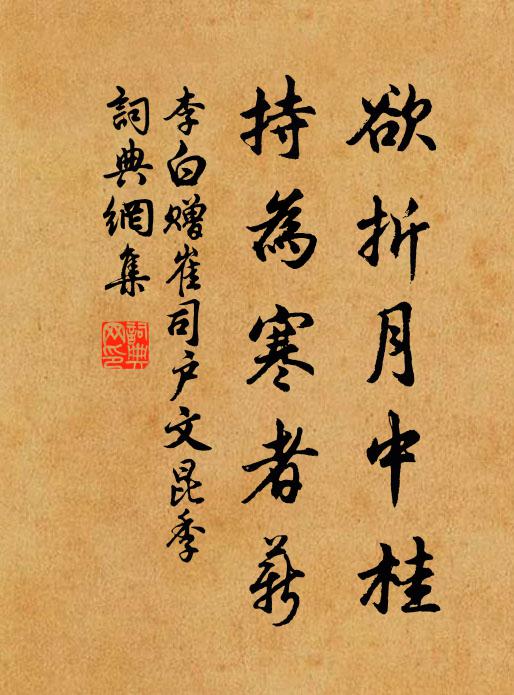 欲折月中桂
持為寒者薪
李白赠崔司户文昆季
詞典網集
詞典网印